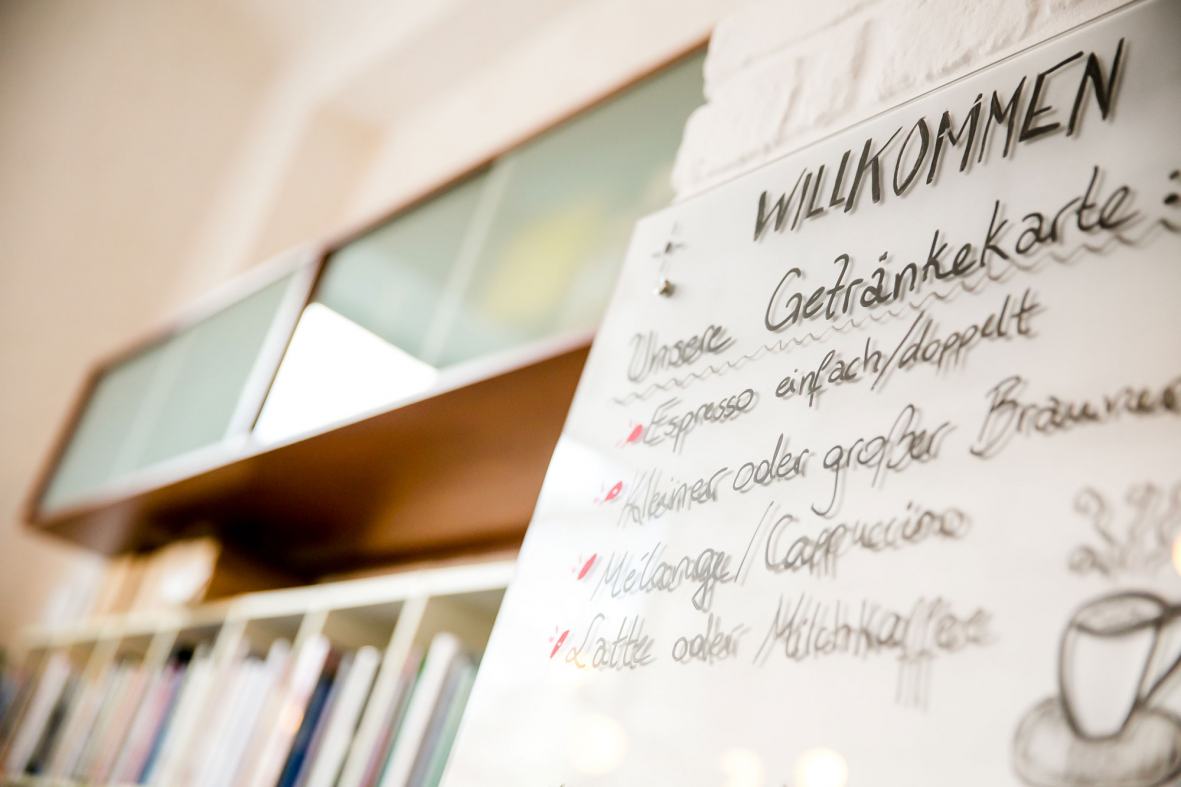 WILLKOMMEN
Unsere Getränkekarte:
Espresso einfach/doppelt
Kleiner oder großer Brauner
Melange/Cappuccino
Latte oder Milchkaffee